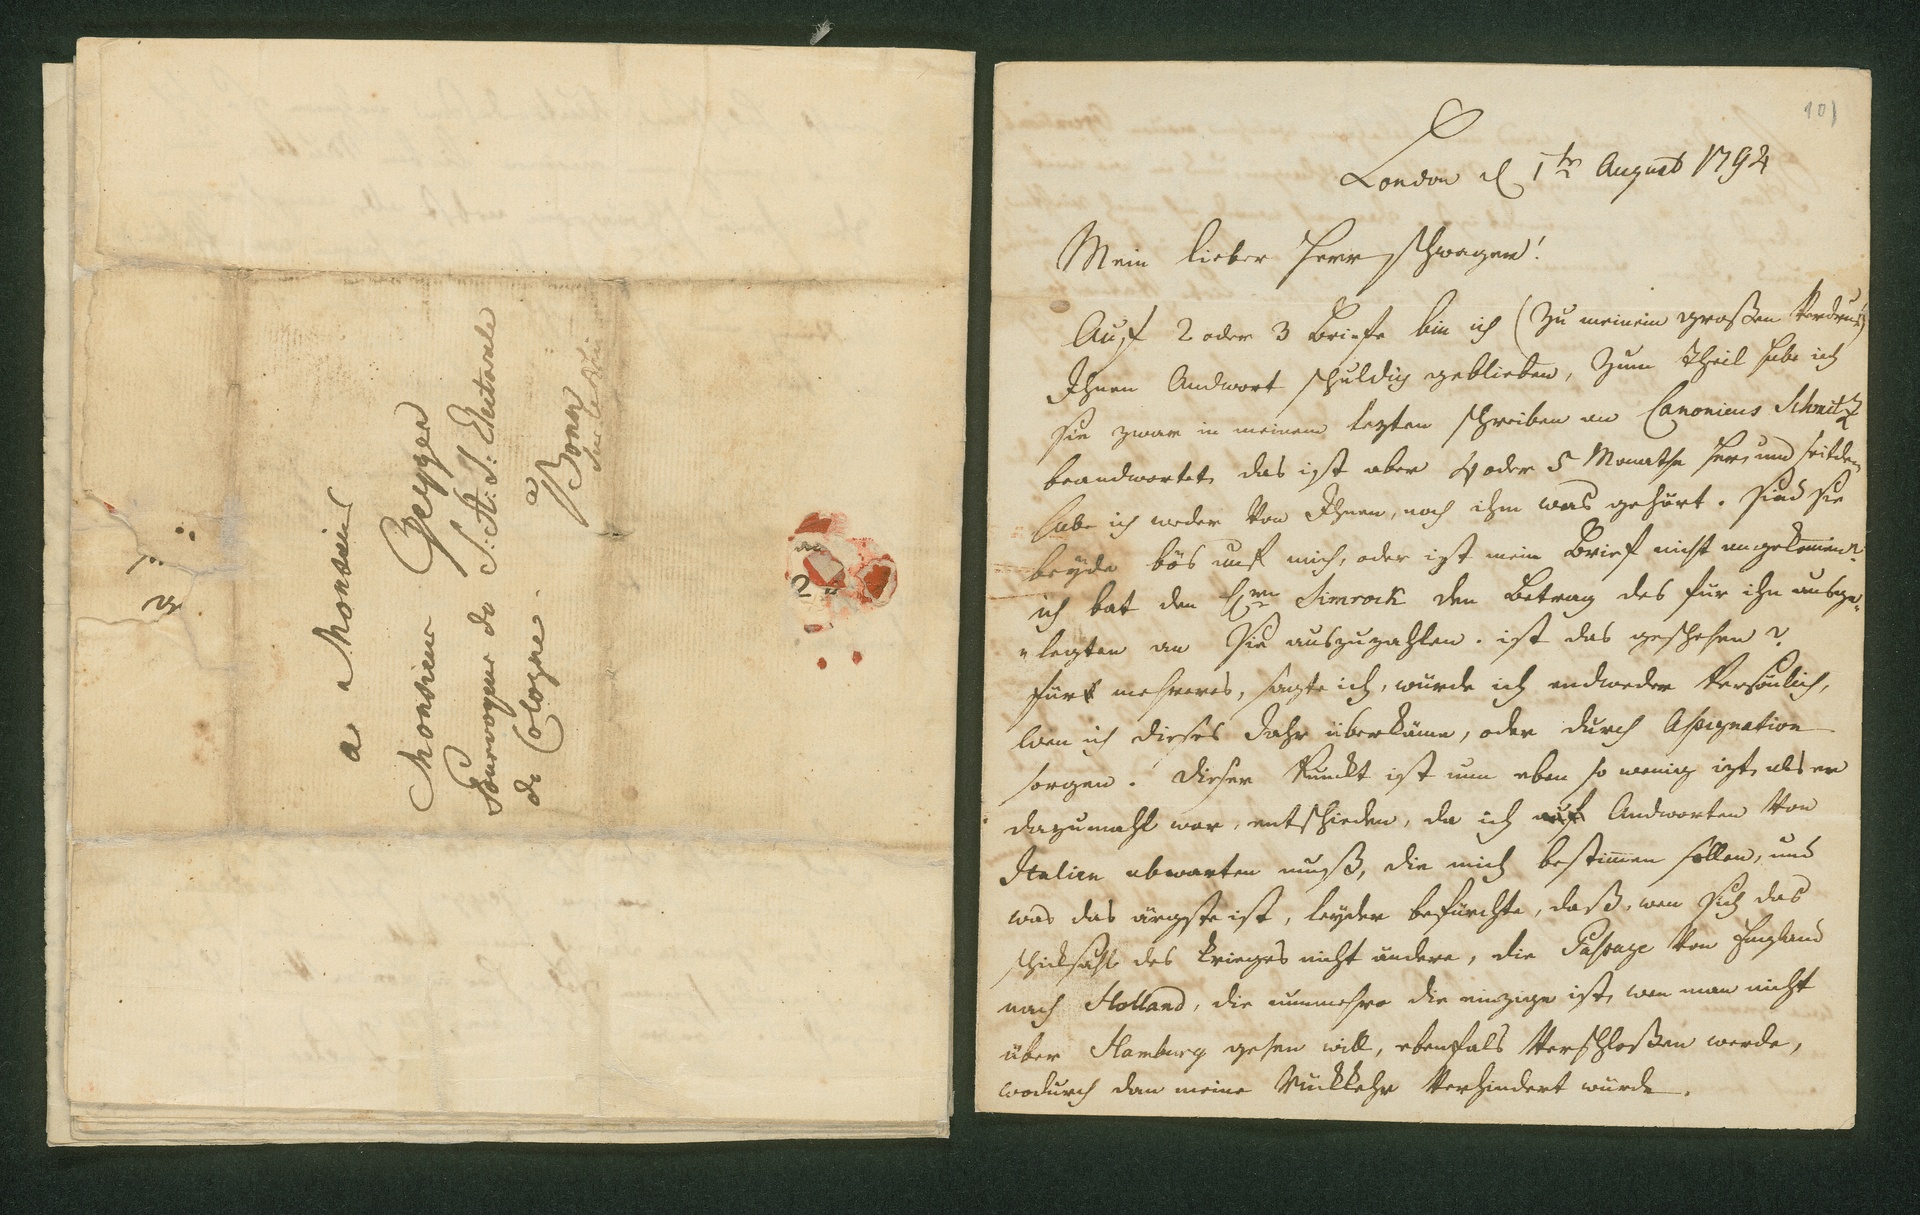 a Monsieur
Monsieur Geyger
Pourvoyeur de S: A: S: Electorale
de Cologne.
a Bonn
Sur le Rhin
101
London d 1tn August 1794
Mein lieber Herr Schwager!
Auf 2 oder 3 Briefe bin ich (zu meinem großen Verdruß)
Ihnen Andwort schuldig geblieben, zum Theil habe ich
sie zwar in meinem lezten schreiben an Canonicus Schmitz
beandwortet, das ist aber 4 oder 5 Monathe her, und seitdem
habe ich weder von Ihnen, noch ihm was gehört. sind sie
beyde bös auf mich, oder ist mein Brief nicht angekommen?
ich bat den Hrn Simrock den Betrag des für ihn ausge-
legten an Sie auszuzahlen. ist das geschehen?
fürs mehreres, sagte ich, würde ich endweder Persönlich,
wen ich dieses Jahr überkäme, oder durch Assignation
sorgen. dieser Punckt ist nun eben so wenig izt, als er
dazumahl war, entschieden, da ich auf Andworten von
Italien abwarten muß, die mich bestimmen sollen, und
was das ärgste ist, leyder befürchte, daß, wen sich das
schicksahl des krieges nicht ändere, die Passage von England
nach Holland, die nunmehro die einzige ist, wen man nicht
über Hamburg gehen will, ebenfals verschloßen werde,
wodurch dan meine Rückkehr verhindert würde.